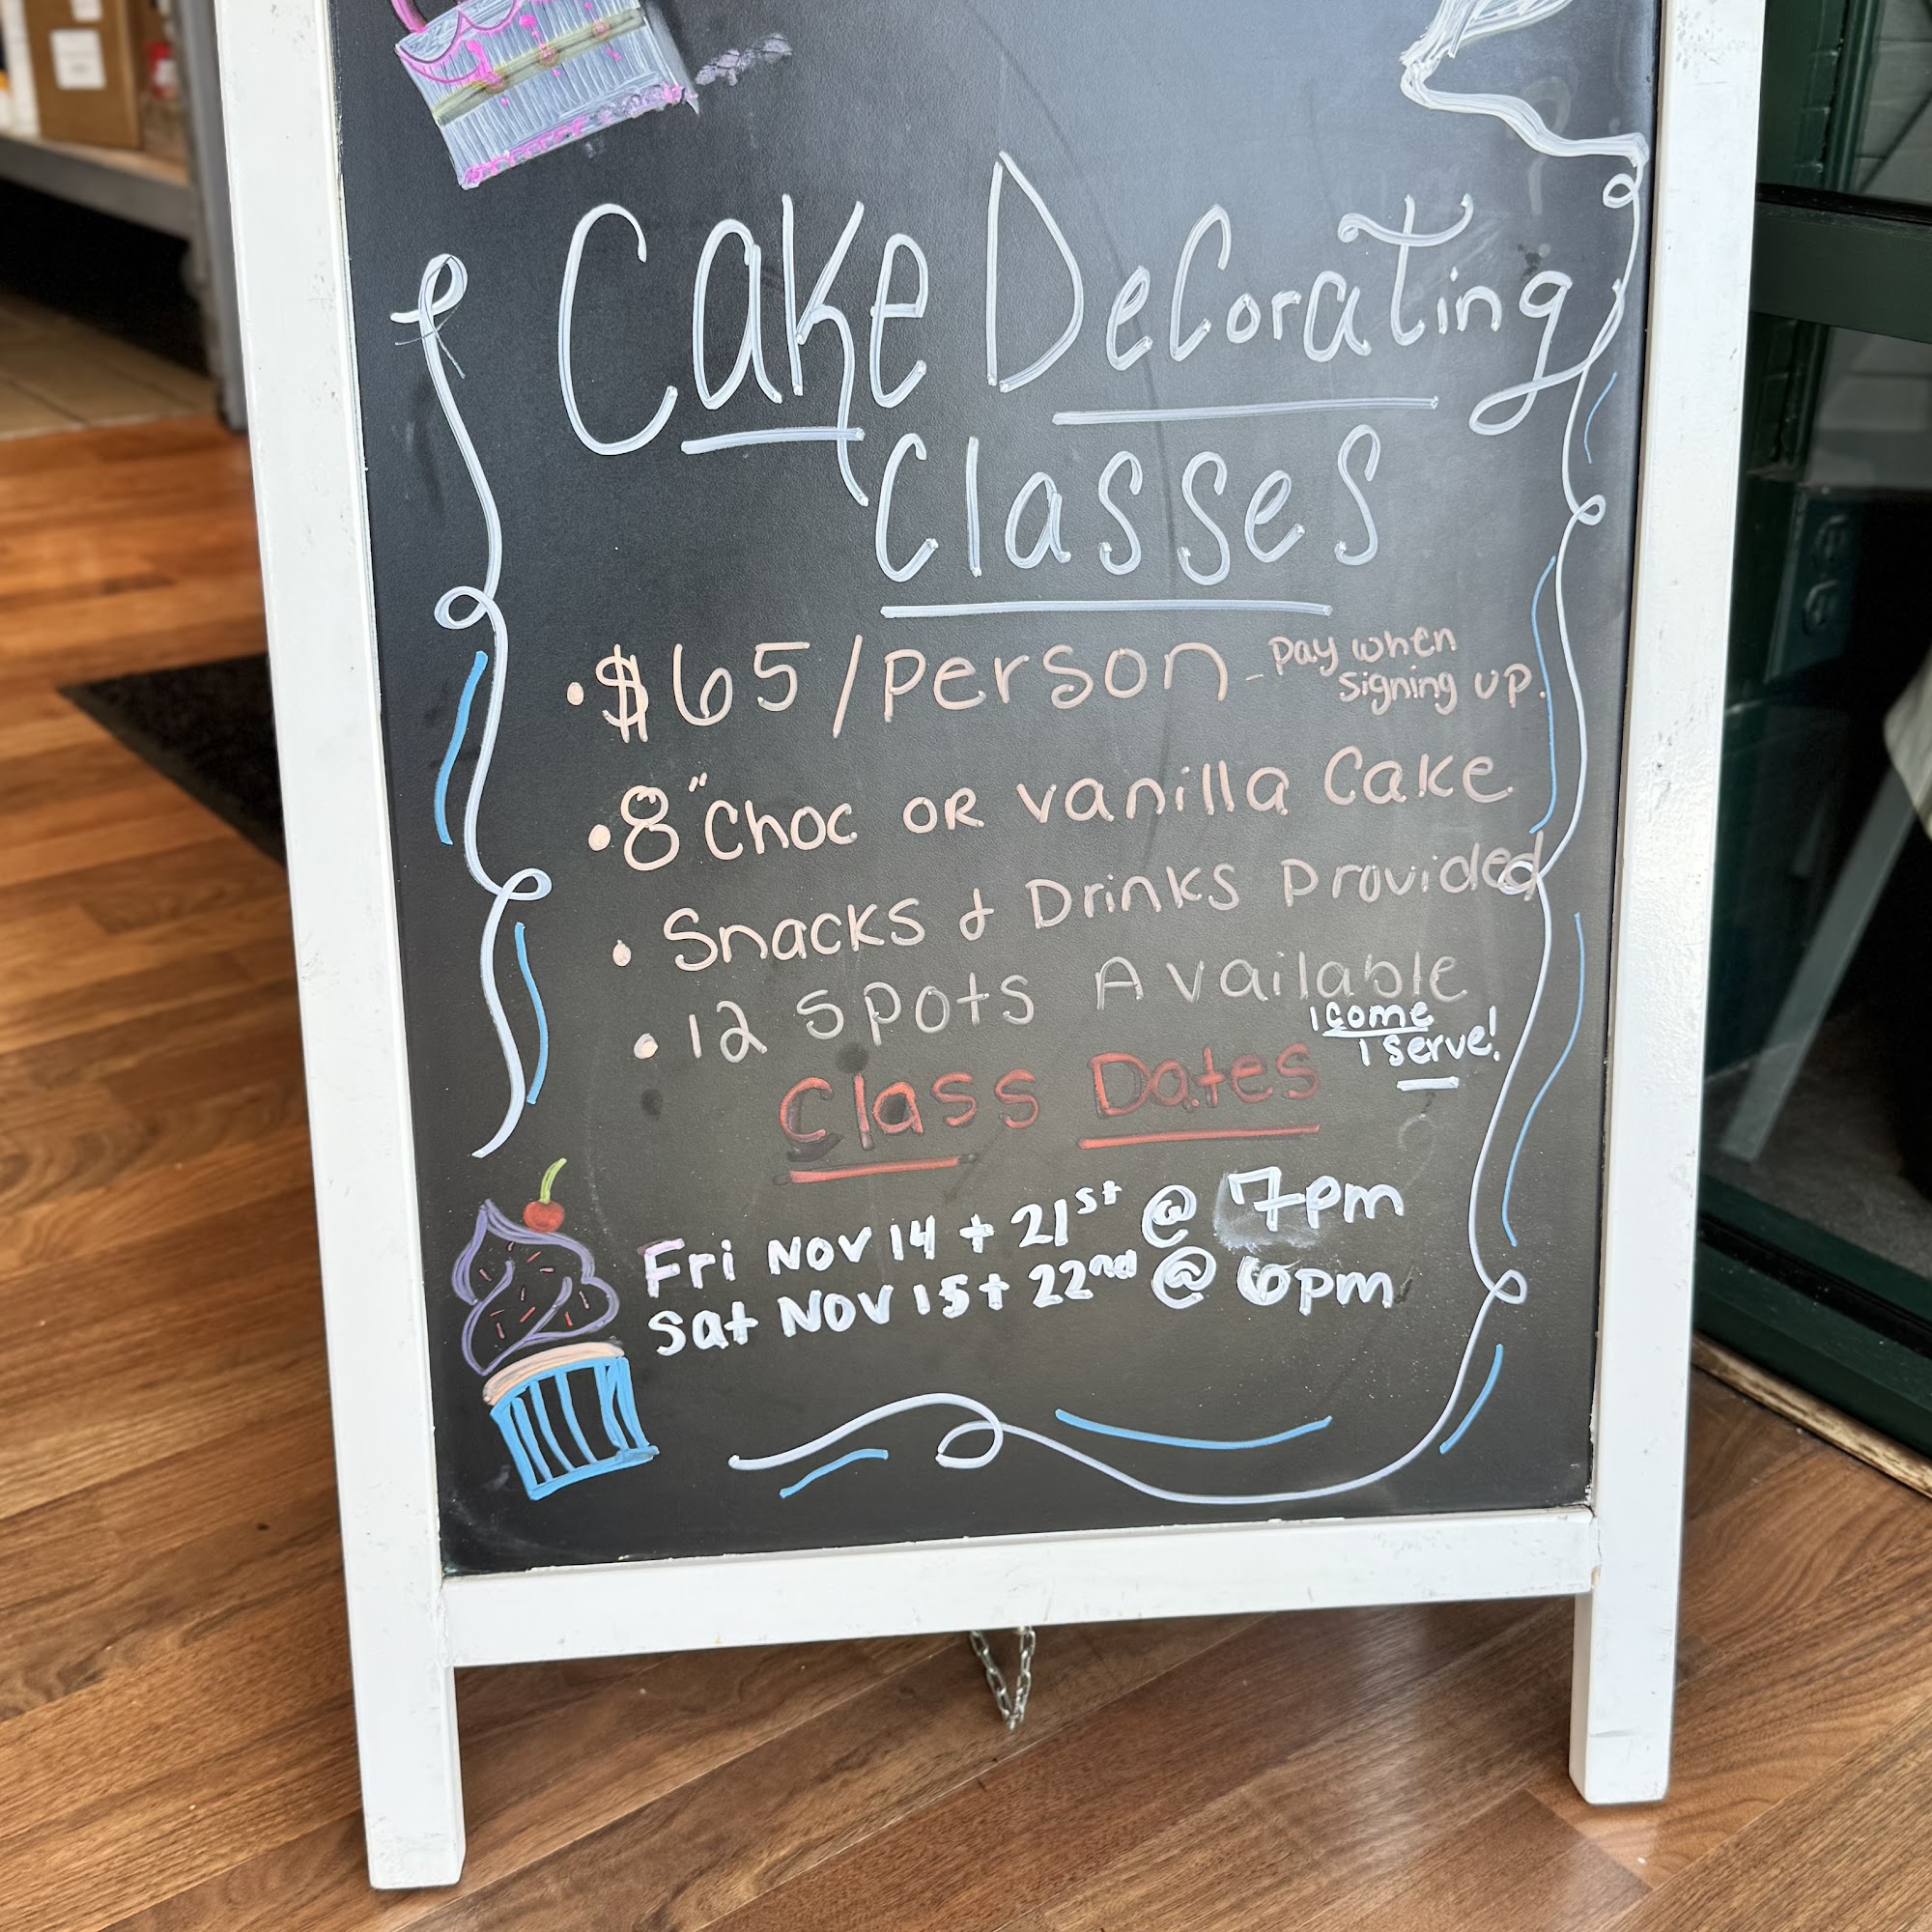 Cake Decorating
Classes
• $65/person - Pay when
signing up.
• 8" Choc or vanilla Cake
• Snacks & Drinks Provided
• 12 Spots Available
1 come
1 serve!
Class Dates
Fri Nov 14 + 21st @ 7pm
Sat Nov 15 + 22nd @ 6pm